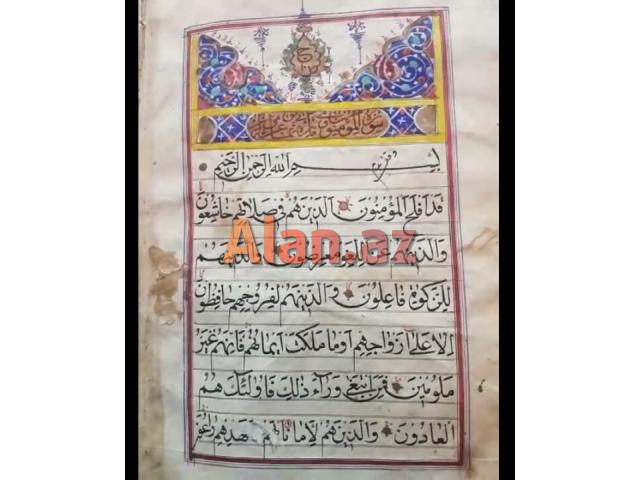 سورة المؤمنون مائة
بسم الله الرحمن الرحيم
قد افلح المؤمنون الذين هم في صلاتهم خاشعون
والذين هم عن اللغو معرضون والذين هم
للزكوة فاعلون والذين هم لفروجهم حافظون
الا على ازواجهم او ما ملكت ايمانهم فانهم غير
ملومين فمن ابتغى وراء ذلك فاولئك هم
العادون والذين هم لاماناتهم وعهدهم راعو
Alan.az